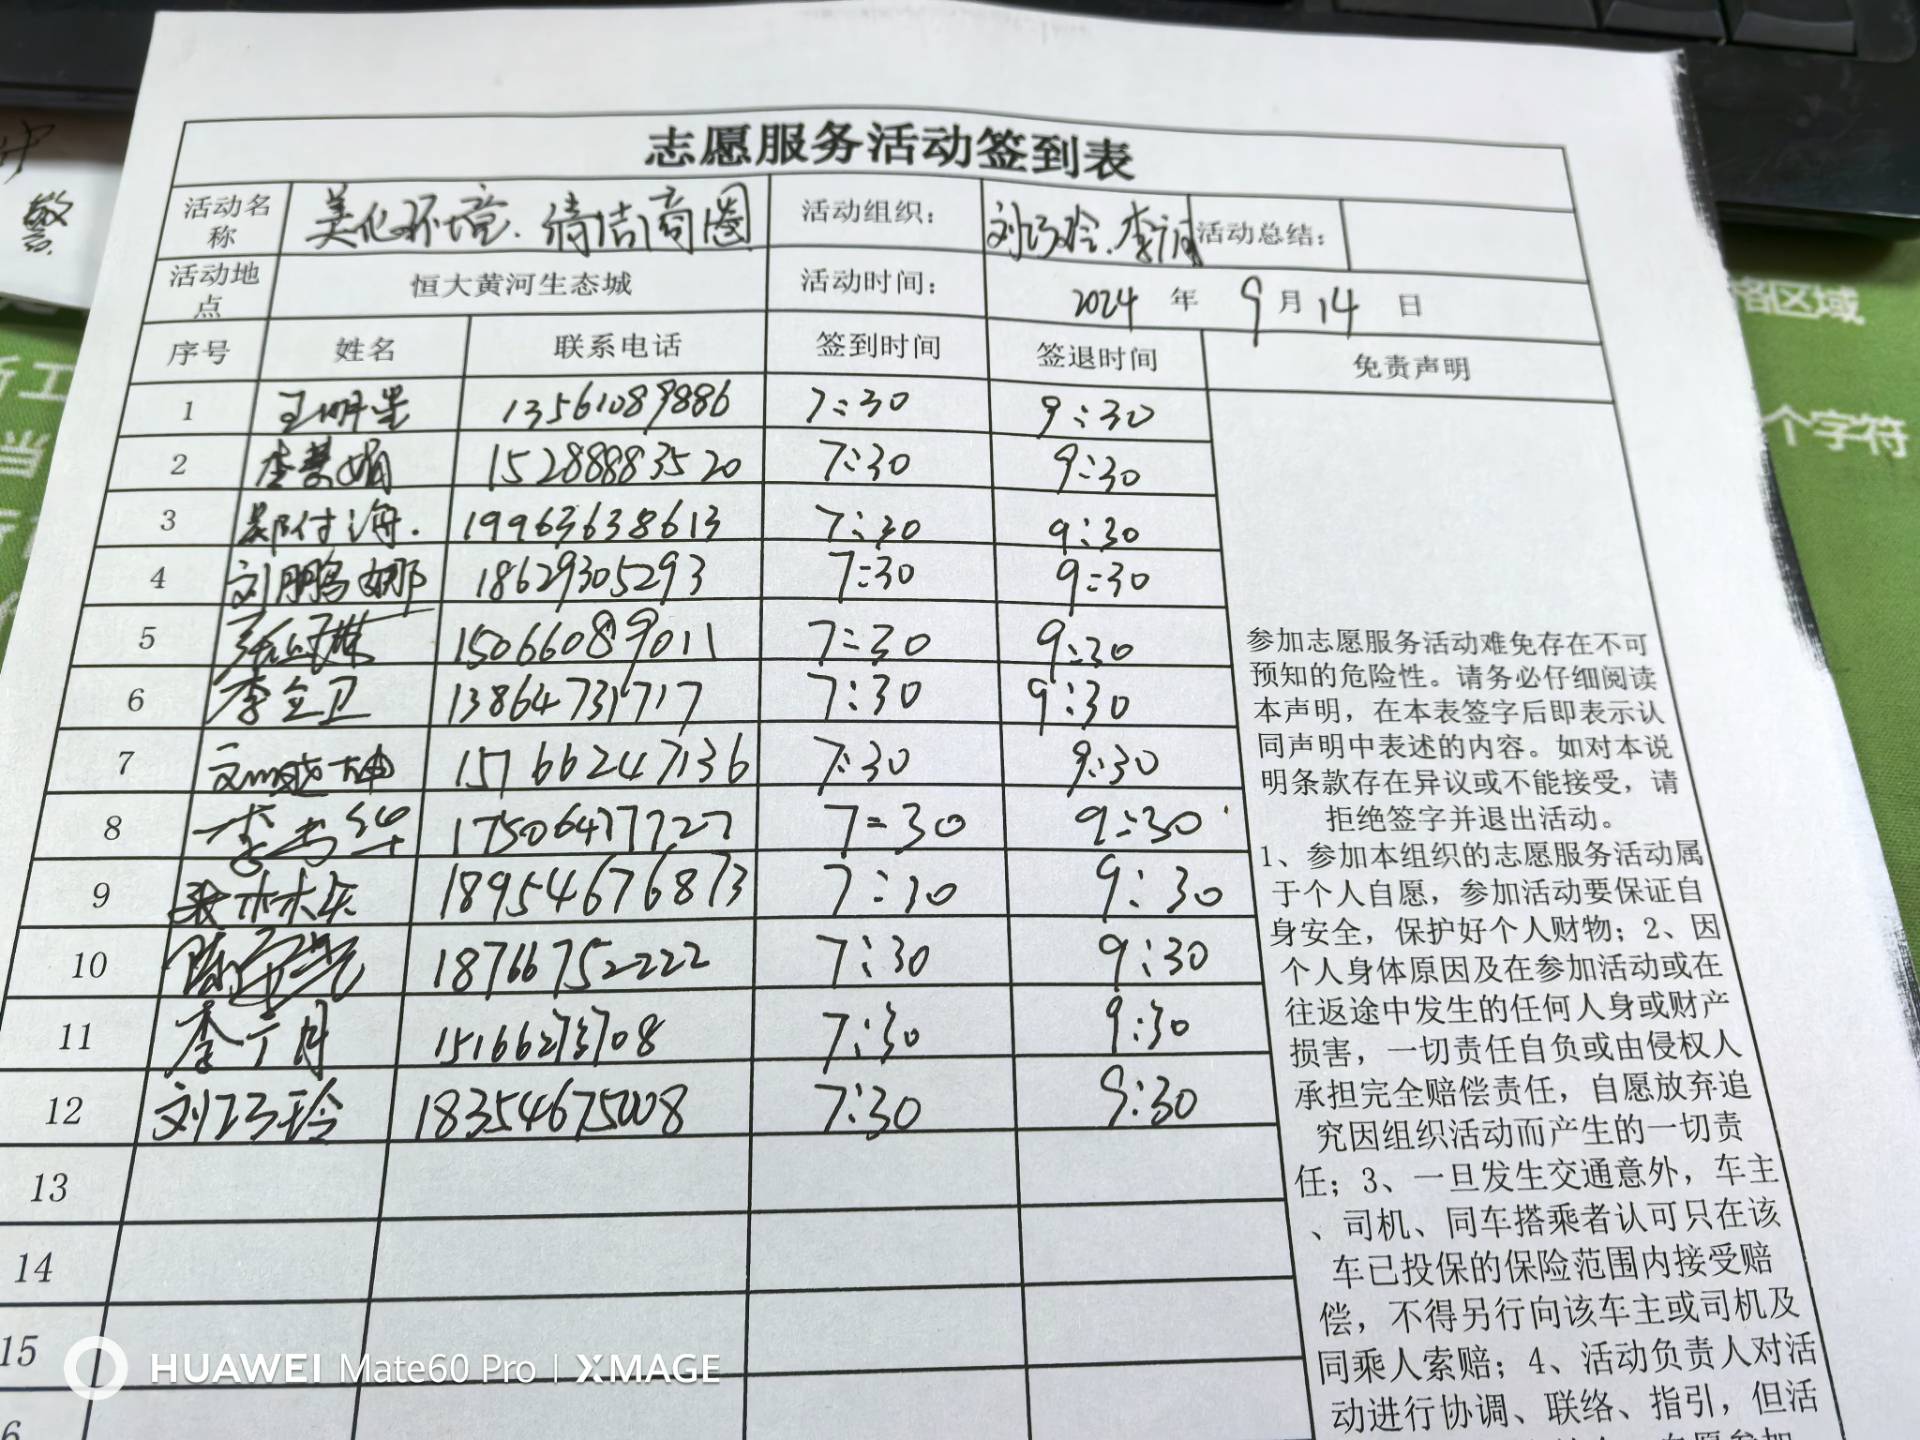 志愿服务活动签到表
活动名称 美化环境.清洁商圈 活动组织： 刘巧玲.李 活动总结：
活动地点 恒大黄河生态城 活动时间： 2024 年 9 月 14 日
序号 姓名 联系电话 签到时间 签退时间 免责声明
1 王明星 13561089886 7:30 9:30
2 李慧娟 15288883520 7:30 9:30
3 郑付海. 19963638613 7:30 9:30
4 刘鹏娜 18629305293 7:30 9:30
5 15066089011 7:30 9:30
6 李全卫 13864731717 7:30 9:30
7 15766247136 7:30 9:30
8 17506477727 7:30 9:30
9 18954676873 7:30 9:30
10 18766752222 7:30 9:30
11 15166273708 7:30 9:30
12 刘巧玲 18354675008 7:30 9:30
13
14
15
参加志愿服务活动难免存在不可
预知的危险性。请务必仔细阅读
本声明，在本表签字后即表示认
同声明中表述的内容。如对本说
明条款存在异议或不能接受，请
拒绝签字并退出活动。
1、参加本组织的志愿服务活动属
于个人自愿，参加活动要保证自
身安全，保护好个人财物；2、因
个人身体原因及在参加活动或在
往返途中发生的任何人身或财产
损害，一切责任自负或由侵权人
承担完全赔偿责任，自愿放弃追
究因组织活动而产生的一切责
任；3、一旦发生交通意外，车主
、司机、同车搭乘者认可只在该
车已投保的保险范围内接受赔
偿，不得另行向该车主或司机及
同乘人索赔；4、活动负责人对活
动进行协调、联络、指引，但活
格区域
个字符
HUAWEI Mate60 Pro | XMAGE